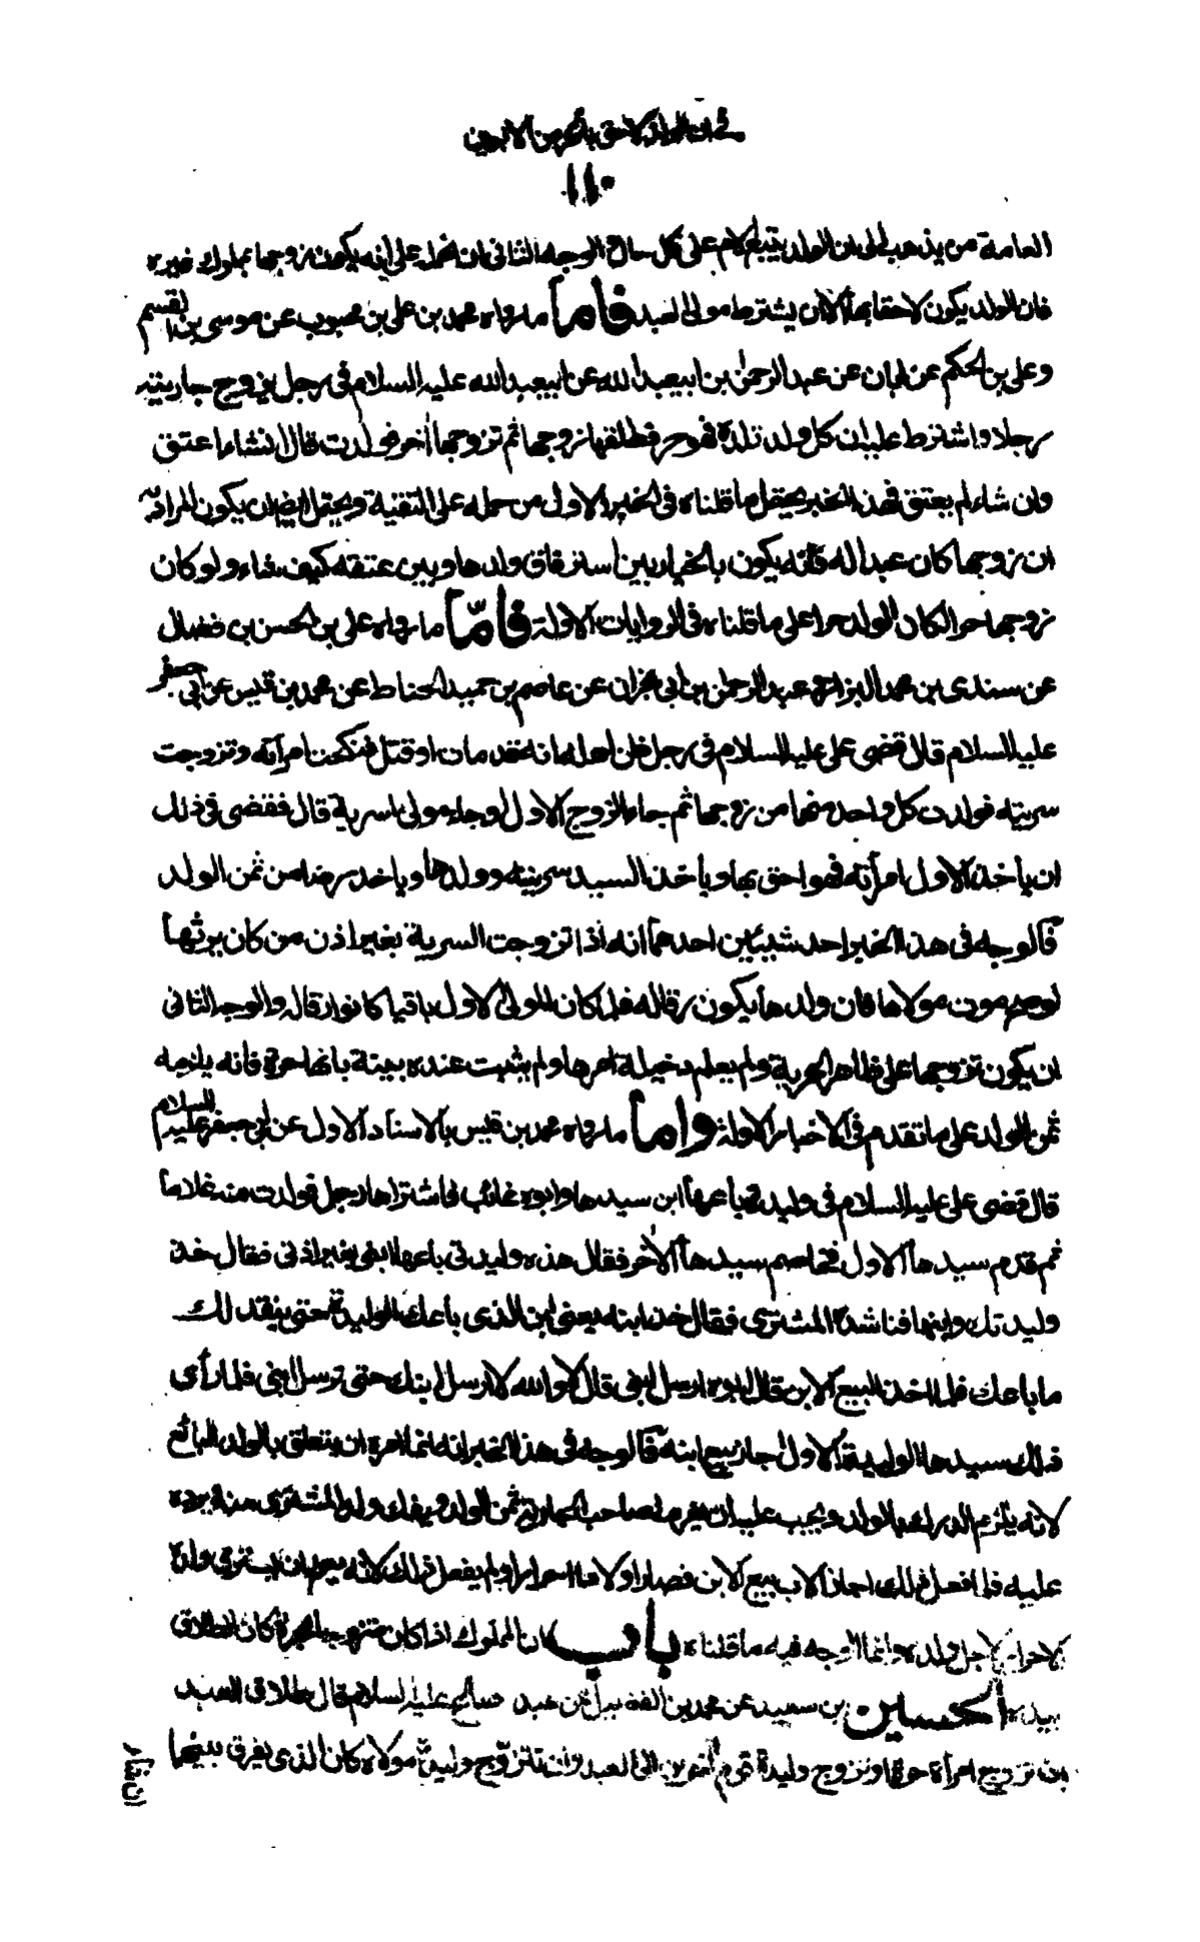 في ان الولد لاحق بالحر من الابوين
١١٠
العامة من يذهب الى ان الولد يتبع الام على كل حال والوجه الثاني ان نحمله على انه يكون زوجها بمملوك غيره
فان الولد يكون لاحقا بها الا ان يشترط مولى العبد فاما ما رواه محمد بن علي بن محبوب عن موسى بن القسم
وعلي بن الحكم عن ابان عن عبد الرحمن بن ابي عبد الله عن ابي عبد الله عليه السلام في رجل يزوج جاريته
رجلا واشترط عليه ان كل ولد تلده فهو حر فطلقها زوجها ثم تزوجها اخر فولدت قال ان شاء اعتق
وان شاء لم يعتق فهذا الخبر يحتمل ما قلناه في الخبر الاول من حمله على التقية ويحتمل ايضا ان يكون المراد به
ان زوجها كان عبدا له فانه يكون بالخيار بين استرقاق ولدها وبين عتقه كيف شاء ولو كان
زوجها حرا لكان الولد حرا على ما قلناه في الروايات الاولة فامّا ما رواه علي بن الحسن بن فضال
عن سندي بن محمد البزاز عن عبد الرحمن بن ابي نجران عن عاصم بن حميد الحناط عن محمد بن قيس عن ابي جعفر
عليه السلام قال قضى علي عليه السلام في رجل ظن اهله انه قد مات او قتل فنكحت امرأته وتزوجت
سريته فولدت كل واحد منهما من زوجها ثم جاء الزوج الاول وجاء مولى السرية قال فقضى في ذلك
ان ياخذ الاول امرأته فهو احق بها وياخذ السيد سريته وولدها وياخذ رضا من ثمن الولد
فالوجه في هذا الخبر احد شيئين احدهما انه اذا تزوجت السرية بغير اذن من كان يرثها
لوصح موت مولاها فان ولدها يكون رقا له فلما كان المولى الاول باقيا كانوا رقا له والوجه الثاني
ان يكون تزوجها على ظاهر الحرية ولم يعلم دخيلة امرها ولم يثبت عنده بينة بانها حرة فانه يلزمه
ثمن الولد على ما تقدم في الاخبار الاولة واما ما رواه محمد بن قيس بالاسناد الاول عن ابي جعفر عليه السلام
قال قضى علي عليه السلام في وليدة باعها ابن سيدها وابوه غائب فاشتراها رجل فولدت منه غلاما
ثم قدم سيدها الاول فخاصم سيدها الاخر فقال هذه وليدتي باعها ابني بغير اذني فقال خذ
وليدتك وابنها فناشده المشتري فقال خذ ابنه يعني ابن الذي باعك الوليدة حتى ينقد لك
ما باعك فلما اخذ البيع الابن قال ابوه ارسل ابني قال لا والله لا ارسل ابنك حتى ترسل ابني فلما رأى
ذلك سيدها الوليدة الاول اجاز بيع ابنه فالوجه في هذا الخبر انه انما امره ان يتعلق بالولد البائع
لانه يلزم الدرك عبد الولد ويجب عليه ان يغرم لصاحب الجارية ثمن الولد ويفك ولد المشتري منه ويرده
عليه فلما فعل ذلك اجاز الاب بيع الابن فصار اولادها احرارا ولم يفعل ذلك لانه يصح ان يسترق ولده
الاحرار لاجل ولده وانما الوجه فيه ما قلناه باب ان المملوك اذا كان متزوجا بحرة كان الطلاق
بيده الحسين بن سعيد عن محمد بن الفضيل عن عبد صالح عليه السلام قال طلاق العبد
ان تزوج امرأة حرة او تزوج وليدة قوم آخرين الى العبد وان تزوج وليدة مولاه كان الذي يفرق بينهما
ان شاء